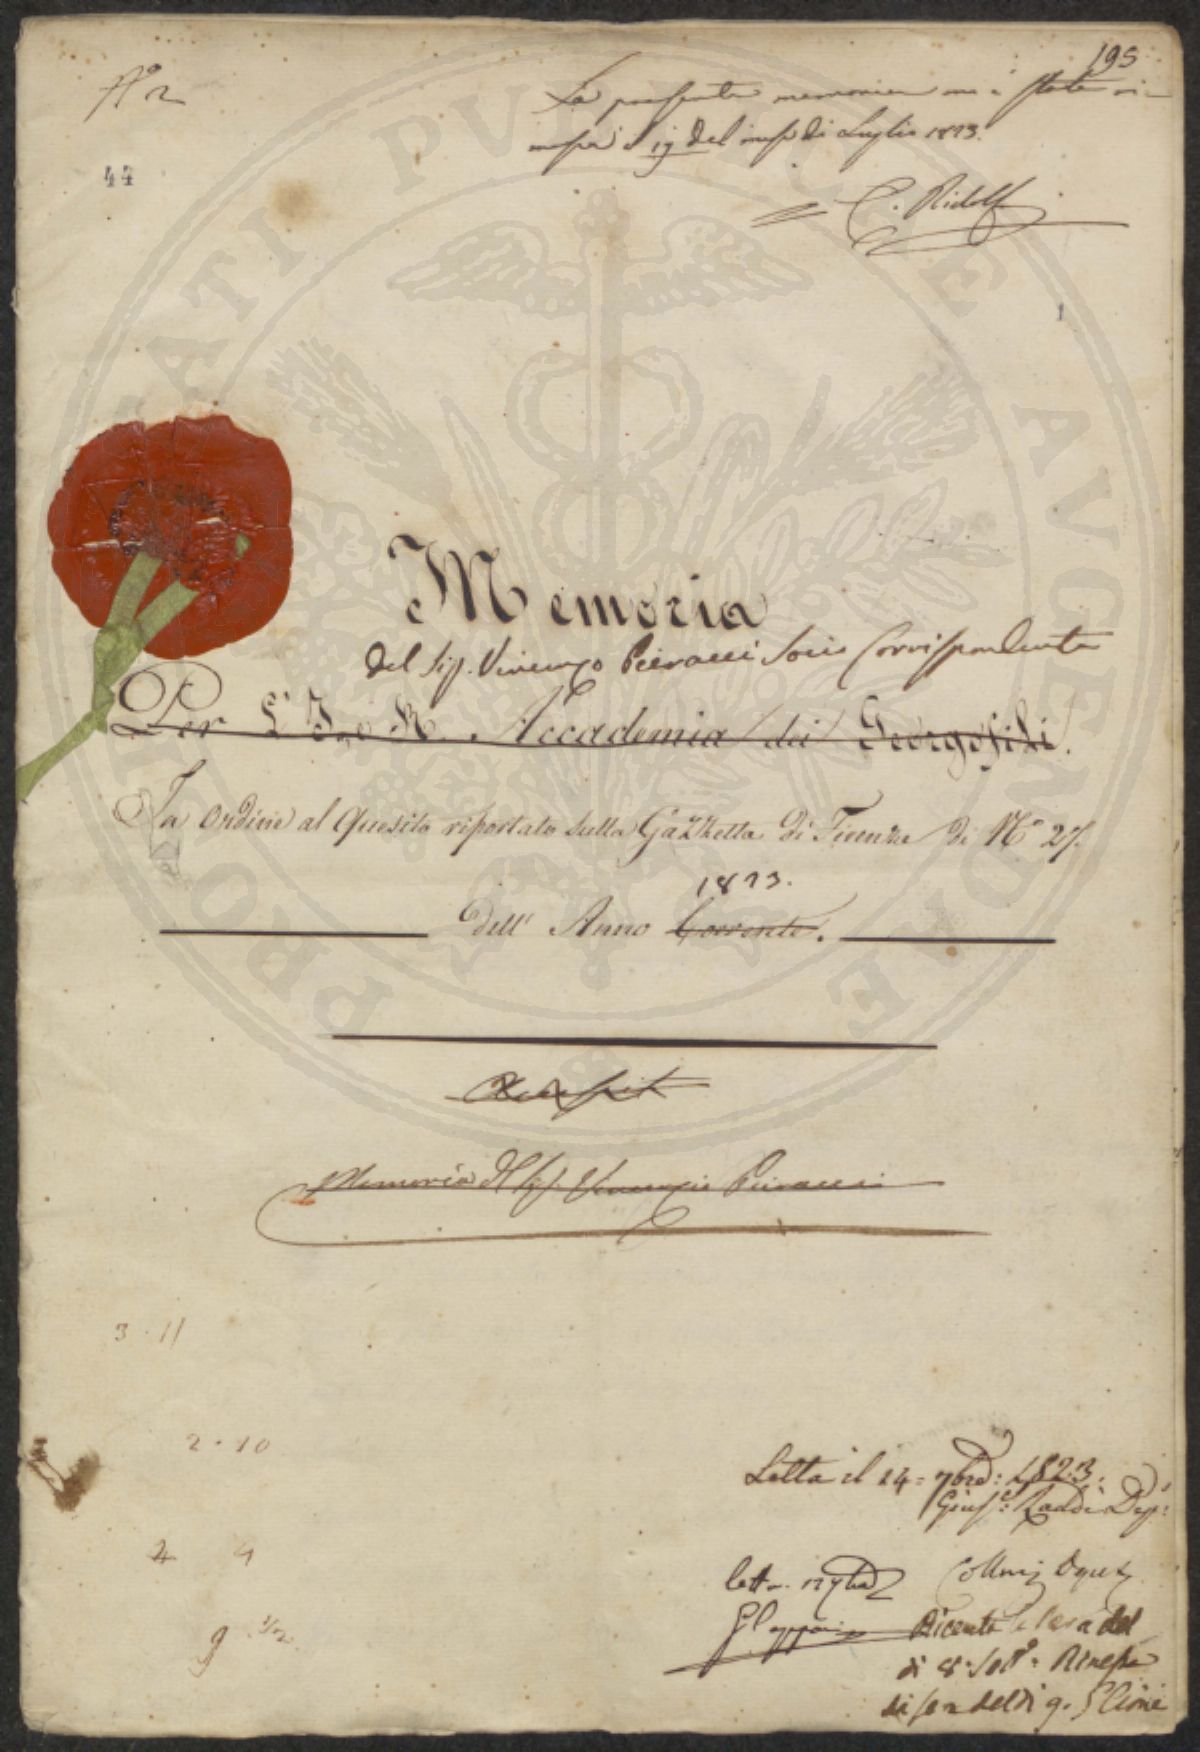 195
N° 2
La presente memoria mi è stata ri-
messa il 19 del mese di Luglio 1823.
C. Ridolfi
44
1
Memoria
del Sig. Vincenzo Pieracci Socio Corrispondente
Per L' I. e R. Accademia dei Georgofili.
In ordine al Quesito riportato sulla Gazzetta di Firenze di N° 27.
1823.
dell' Anno Corrente.
Memoria del Sig. Vincenzio Pieracci
3 . 11
2 . 10
4 9
9 1/2
Letta il 14 = 7bre: 1823.
Gius.e: Raddi Dep:
lett. 12
Ricevuta la sera del
di 8. Sett.e Rimessa
la sera del di 9.
PROSPERITATI PVBLICAE AVGENDAE